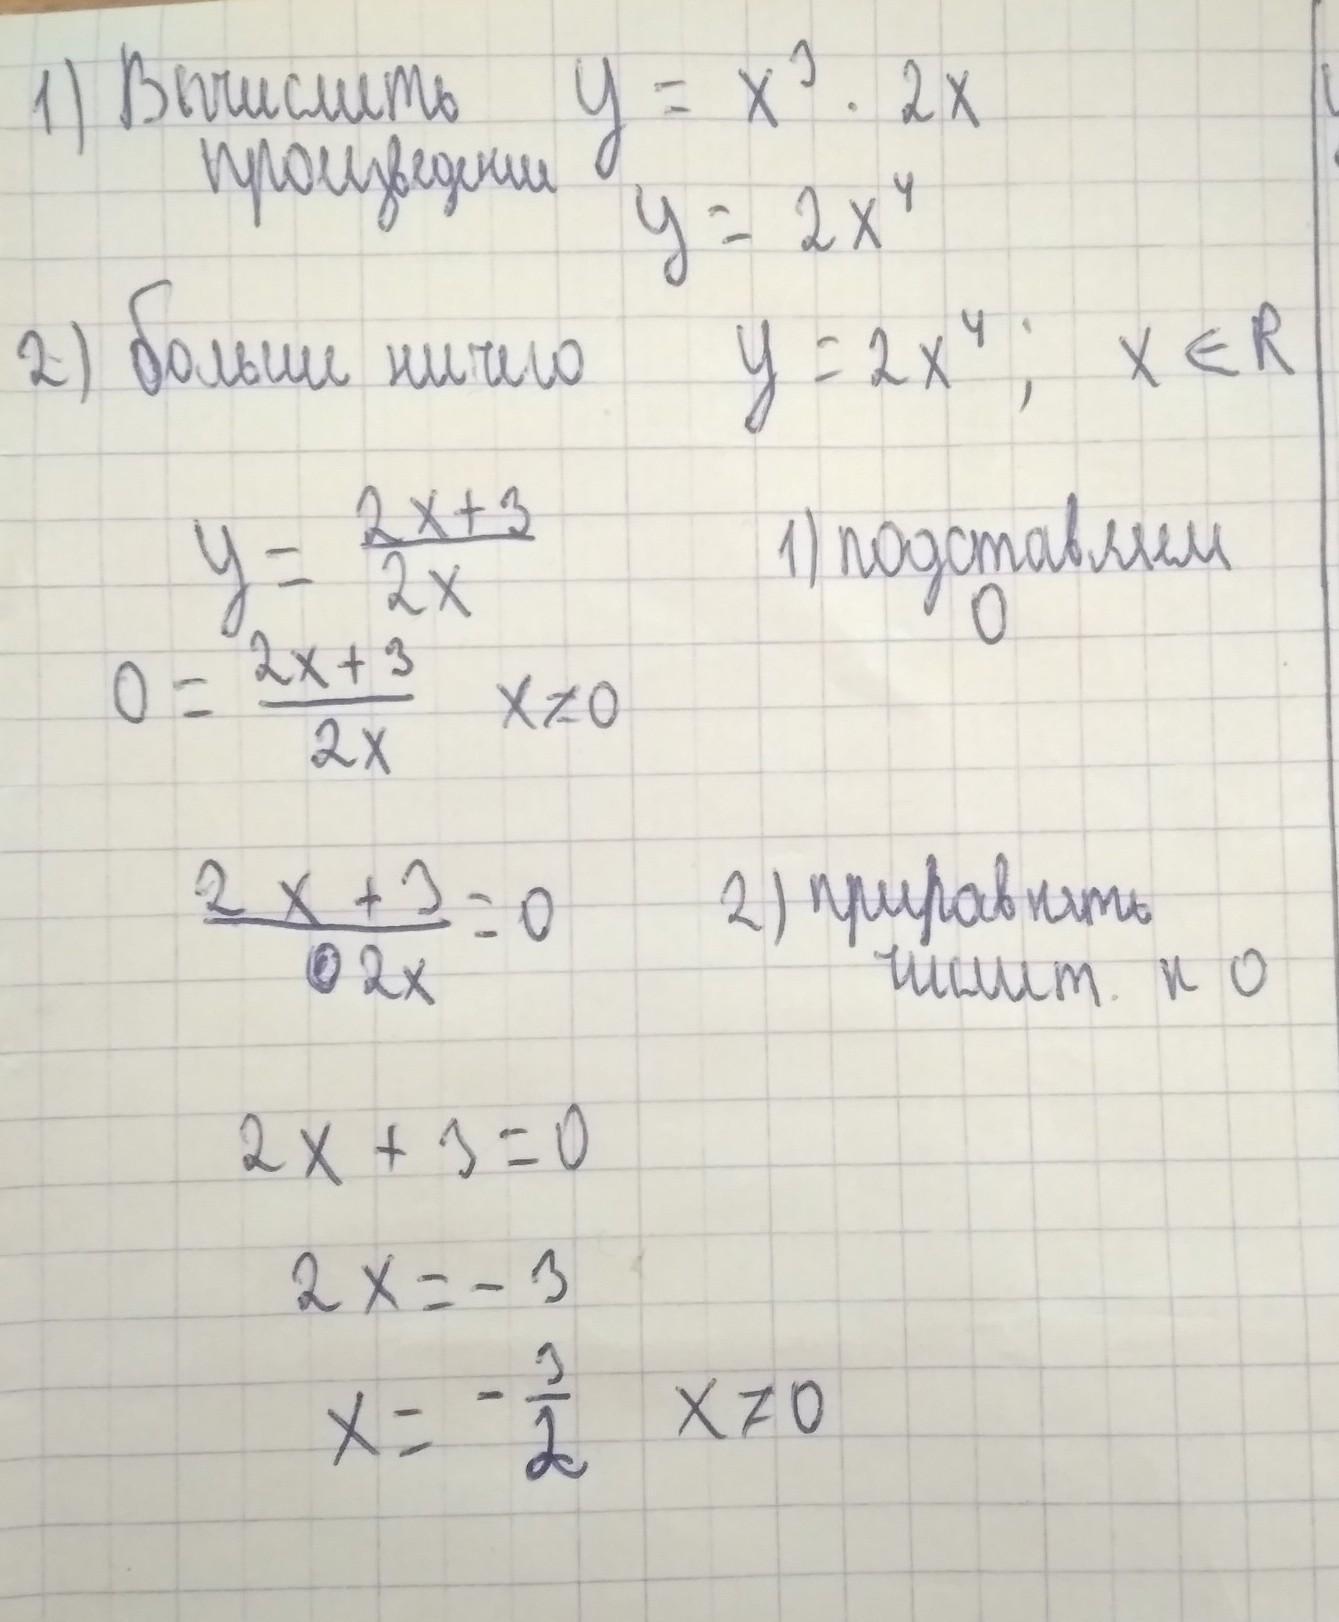 1) Вычислить y = x³ · 2x
произведении
y = 2x⁴
2) больше ничего y = 2x⁴; x ∈ R
y = (2x+3)/(2x) 1) подставляем
0
0 = (2x+3)/(2x) x≠0
(2x+3)/(2x) = 0 2) приравнять
числит. к 0
2x + 3 = 0
2x = - 3
x = - 3/2 x≠0